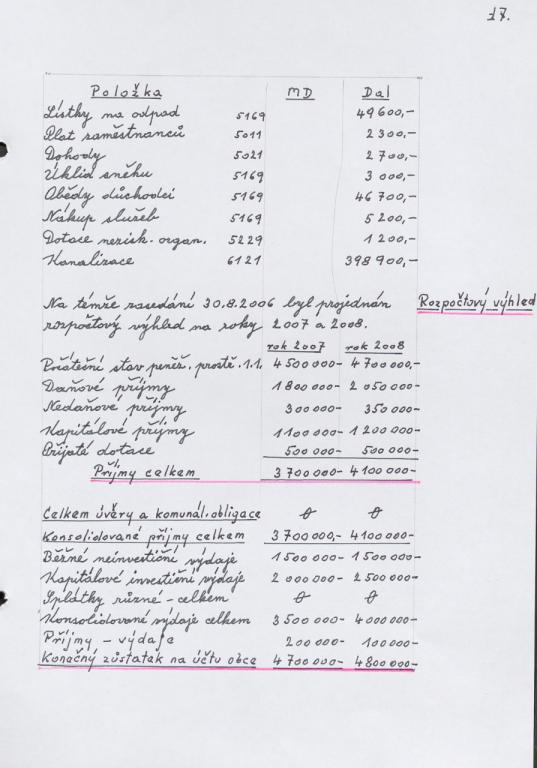 17.
Položka MD Dal
Lístky na odpad 5169 49600,-
Plat zaměstnanců 5011 2300,-
Dohody 5021 2700,-
Úklid sněhu 5169 3000,-
Obědy důchodci 5169 46700,-
Nákup služeb 5169 5200,-
Dotace nezisk. organ. 5229 1200,-
Kanalizace 6121 398900,-
Na témže zasedání 30.8.2006 byl projednán Rozpočtový výhled
rozpočtový výhled na roky 2007 a 2008.
rok 2007 rok 2008
Počáteční stav peněž. prostř. 1.1. 4500000- 4700000,-
Daňové příjmy 1800000- 2050000-
Nedaňové příjmy 300000- 350000-
Kapitálové příjmy 1100000- 1200000-
Přijaté dotace 500000- 500000-
Příjmy celkem 3700000- 4100000-
Celkem úvěry a komunál. obligace 0 0
Konsolidované příjmy celkem 3700000,- 4100000-
Běžné neinvestiční výdaje 1500000- 1500000-
Kapitálové investiční výdaje 2000000- 2500000-
Splátky různé - celkem 0 0
Konsolidované výdaje celkem 3500000- 4000000-
Příjmy - výdaje 200000- 100000-
Konačný zůstatak na účtu obce 4700000- 4800000-